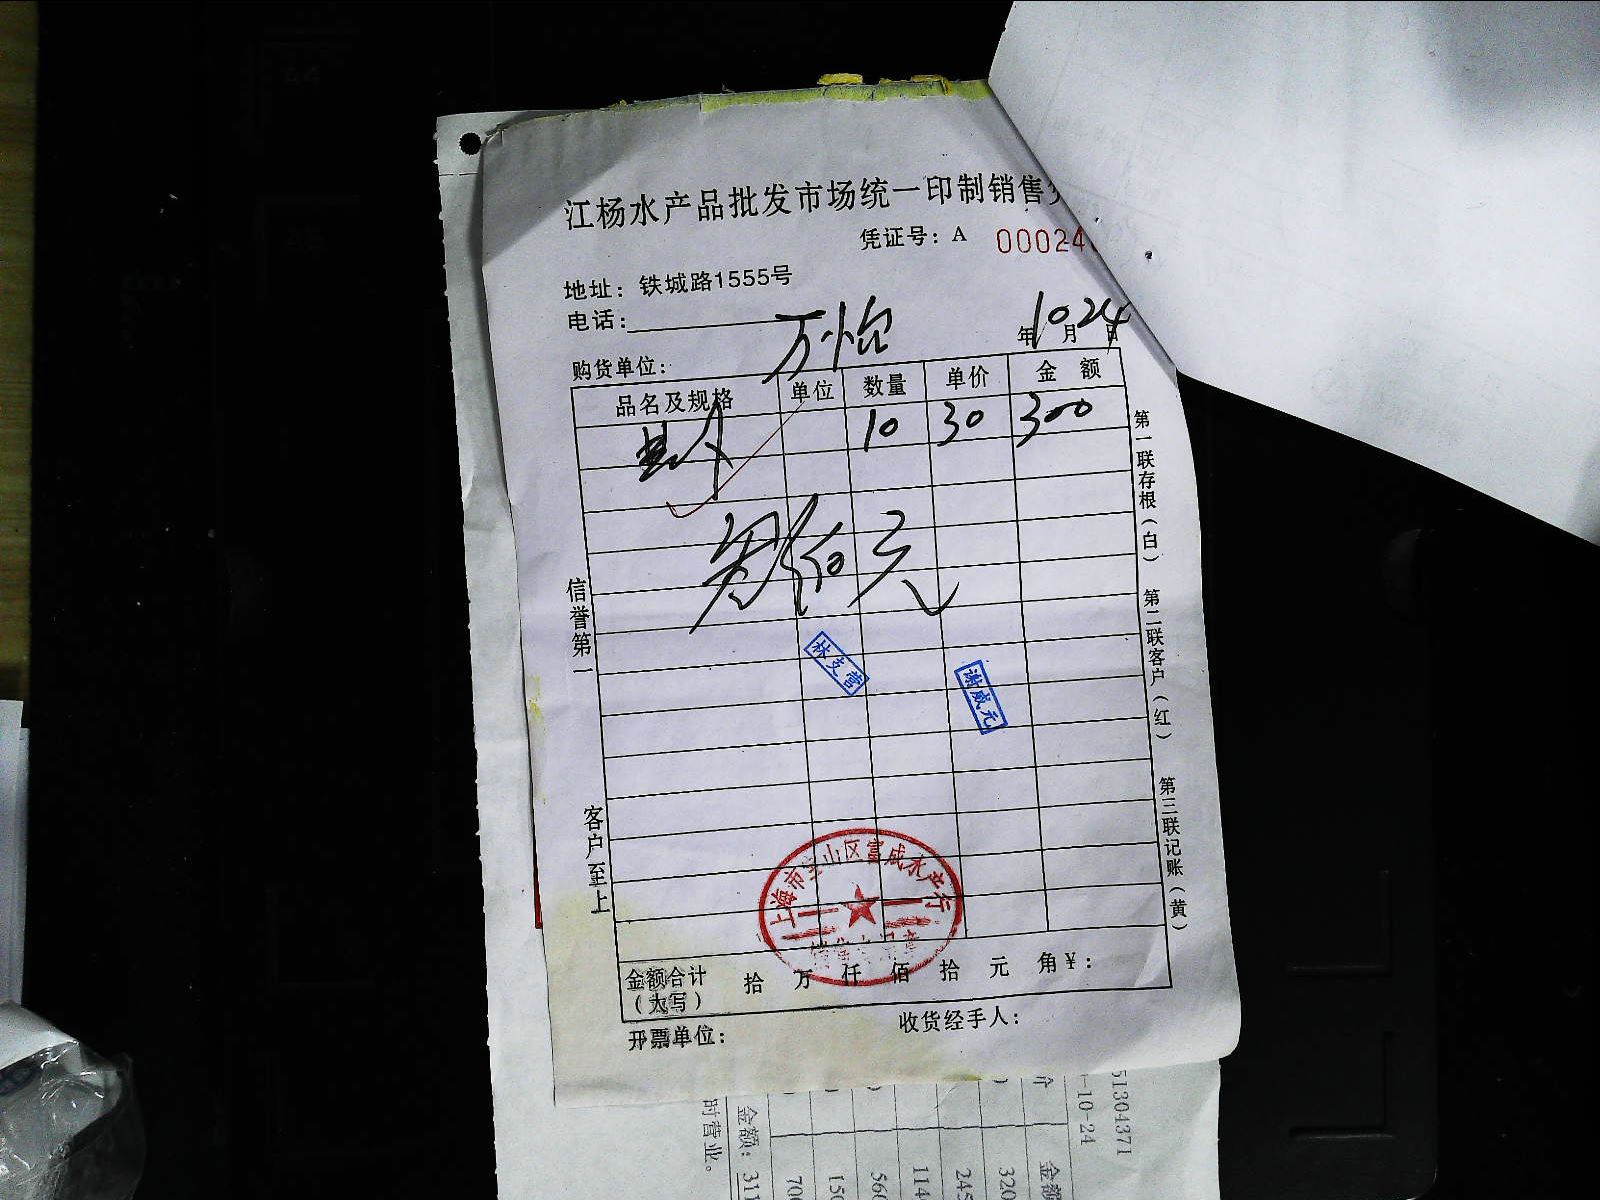 江杨水产品批发市场统一印制销售
凭证号：A 00024
地址：铁城路1555号
电话：
购货单位： 万怡 年 10 月 24 日
品名及规格 单位 数量 单价 金 额
10 30 300
叁佰元
林支营
谢威元
信誉第一
客户至上
第一联存根（白）
第二联客户（红）
第三联记账（黄）
上海市宝山区富成水产行
金额合计（大写） 拾 万 仟 佰 拾 元 角 ¥：
开票单位： 收货经手人：
51304371
-10-24
金额
320
245
114
560
150
700
金额：311
时营业。